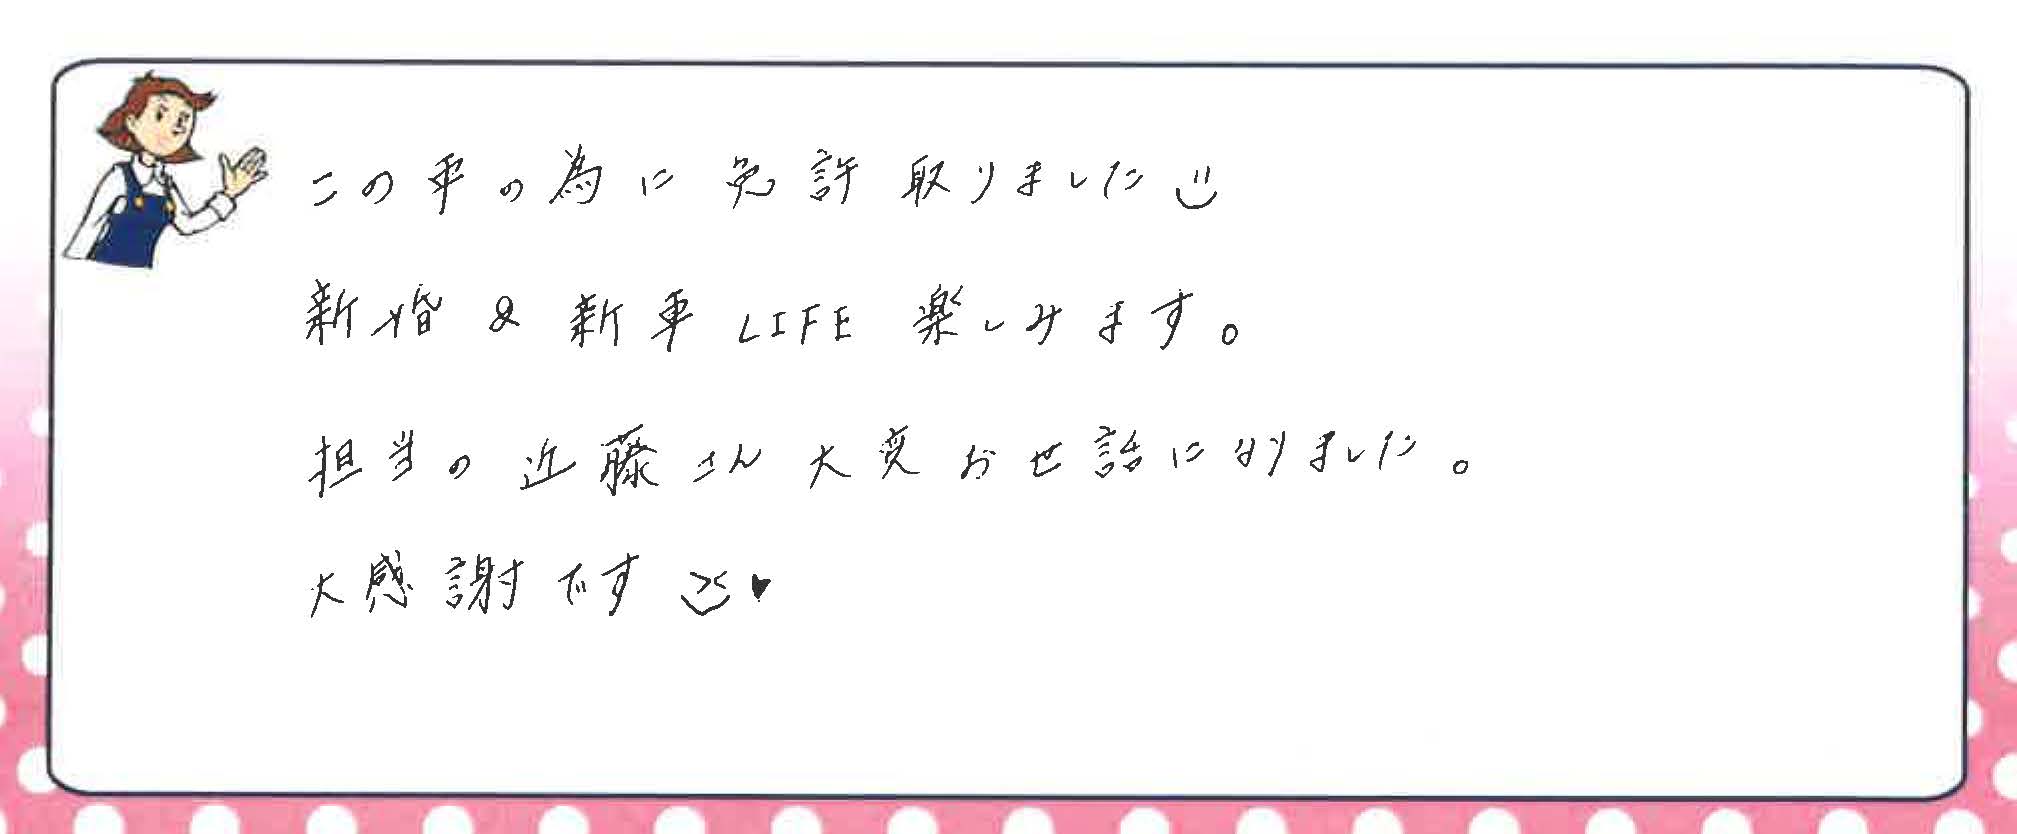 この車の為に免許取りました
新婚&新車LIFE楽しみます。
担当の近藤さん大変お世話になりました。
大感謝です♥